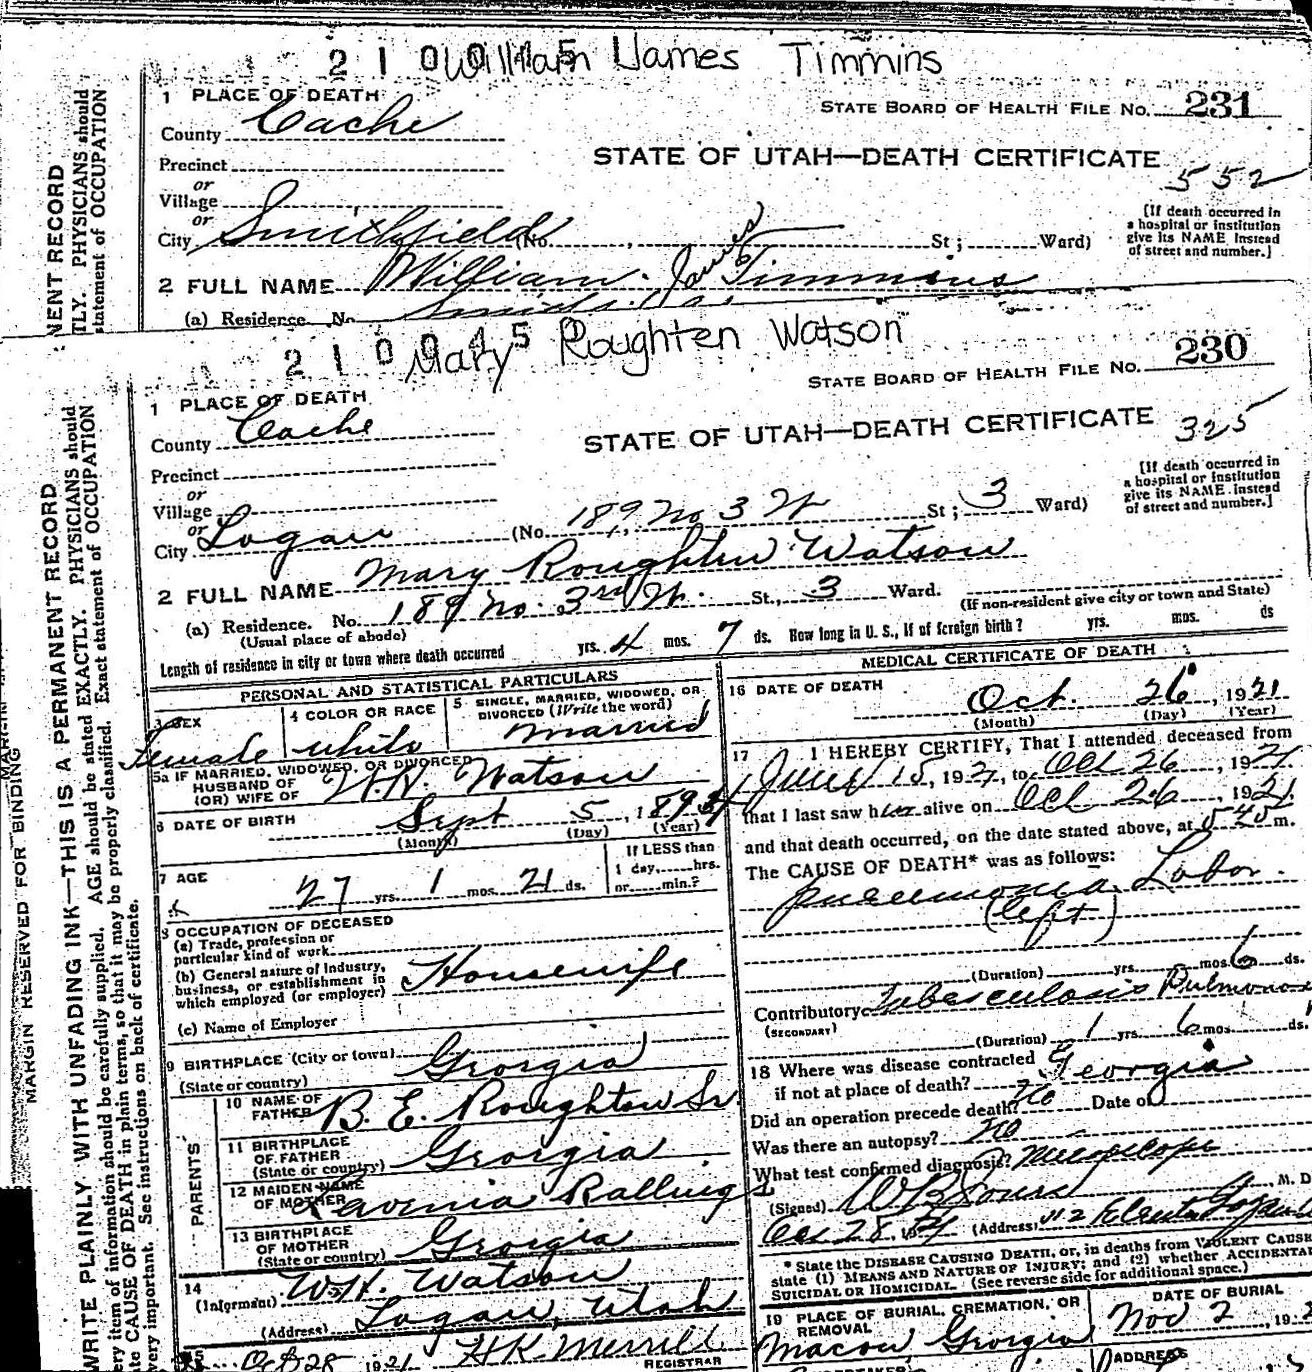 2 1 0 0 4 5 William James Timmins
1 PLACE OF DEATH
STATE BOARD OF HEALTH FILE No. 231
County Cache
STATE OF UTAH—DEATH CERTIFICATE
552
Precinct
or
Village
or
City Smithfield (No. , St ; Ward)
[If death occurred in
a hospital or institution
give its NAME instead
of street and number.]
2 FULL NAME William James Timmins
(a) Residence No.
2 1 0 0 4 5 Mary Roughten Watson
1 PLACE OF DEATH
STATE BOARD OF HEALTH FILE No. 230
County Cache
STATE OF UTAH—DEATH CERTIFICATE
325
Precinct
or
Village
or
City Logan (No. 189 No 3 W St ; 3 Ward)
[If death occurred in
a hospital or institution
give its NAME instead
of street and number.]
2 FULL NAME Mary Roughten Watson
(a) Residence. No. 189 No. 3rd W. St., 3 Ward.
(Usual place of abode)
(If non-resident give city or town and State)
Length of residence in city or town where death occurred yrs. 4 mos. 7 ds. How long in U. S., if of foreign birth? yrs. mos. ds
PERSONAL AND STATISTICAL PARTICULARS
3 SEX
Female
4 COLOR OR RACE
white
5 SINGLE, MARRIED, WIDOWED, OR
DIVORCED (Write the word)
married
5a IF MARRIED, WIDOWED, OR DIVORCED
HUSBAND OF
(OR) WIFE OF W. H. Watson
6 DATE OF BIRTH Sept 5, 1894
(Month) (Day) (Year)
7 AGE
27 yrs. 1 mos. 21 ds.
If LESS than
1 day,......hrs.
or......min.?
8 OCCUPATION OF DECEASED
(a) Trade, profession or
particular kind of work
(b) General nature of Industry,
business, or establishment in
which employed (or employer) Housewife
(c) Name of Employer
9 BIRTHPLACE (City or town) Georgia
(State or country)
PARENTS
10 NAME OF
FATHER B. E. Roughton Sr
11 BIRTHPLACE
OF FATHER
(State or country) Georgia
12 MAIDEN NAME
OF MOTHER Lavenia Rallings
13 BIRTHPLACE
OF MOTHER
(State or country) Georgia
14
(Informant) W. H. Watson
(Address) Logan, Utah
15 Oct 28 1921 H K Merrill
REGISTRAR
MEDICAL CERTIFICATE OF DEATH
16 DATE OF DEATH
Oct. 26, 1921
(Month) (Day) (Year)
17 I HEREBY CERTIFY, That I attended deceased from
June 15, 1921, to Oct 26, 1921
that I last saw her alive on Oct 26, 1921
and that death occurred, on the date stated above, at 5 40 m.
The CAUSE OF DEATH* was as follows:
pneumonia Lobar.
(left)
(Duration) yrs. mos. 6 ds.
Contributory Tuberculosis Pulmonar
(SECONDARY)
(Duration) 1 yrs. 6 mos. ds.
18 Where was disease contracted
if not at place of death? Georgia
Did an operation precede death? No Date of
Was there an autopsy? No
What test confirmed diagnosis? Microscope
(Signed) M. D
Oct 28, 21 (Address)
* State the DISEASE CAUSING DEATH, or, in deaths from VIOLENT CAUSE
state (1) MEANS AND NATURE OF INJURY; and (2) whether ACCIDENTA
SUICIDAL OR HOMICIDAL. (See reverse side for additional space.)
19 PLACE OF BURIAL, CREMATION, OR
REMOVAL
Macon Georgia
DATE OF BURIAL
Nov 2, 192
ADDRESS
NENT RECORD
TLY. PHYSICIANS should
statement of OCCUPATION
MARGIN RESERVED FOR BINDING
WRITE PLAINLY WITH UNFADING INK—THIS IS A PERMANENT RECORD
ery item of information should be carefully supplied. AGE should be stated EXACTLY. PHYSICIANS should
te CAUSE OF DEATH in plain terms, so that it may be properly classified. Exact statement of OCCUPATION
very important. See instructions on back of certificate.